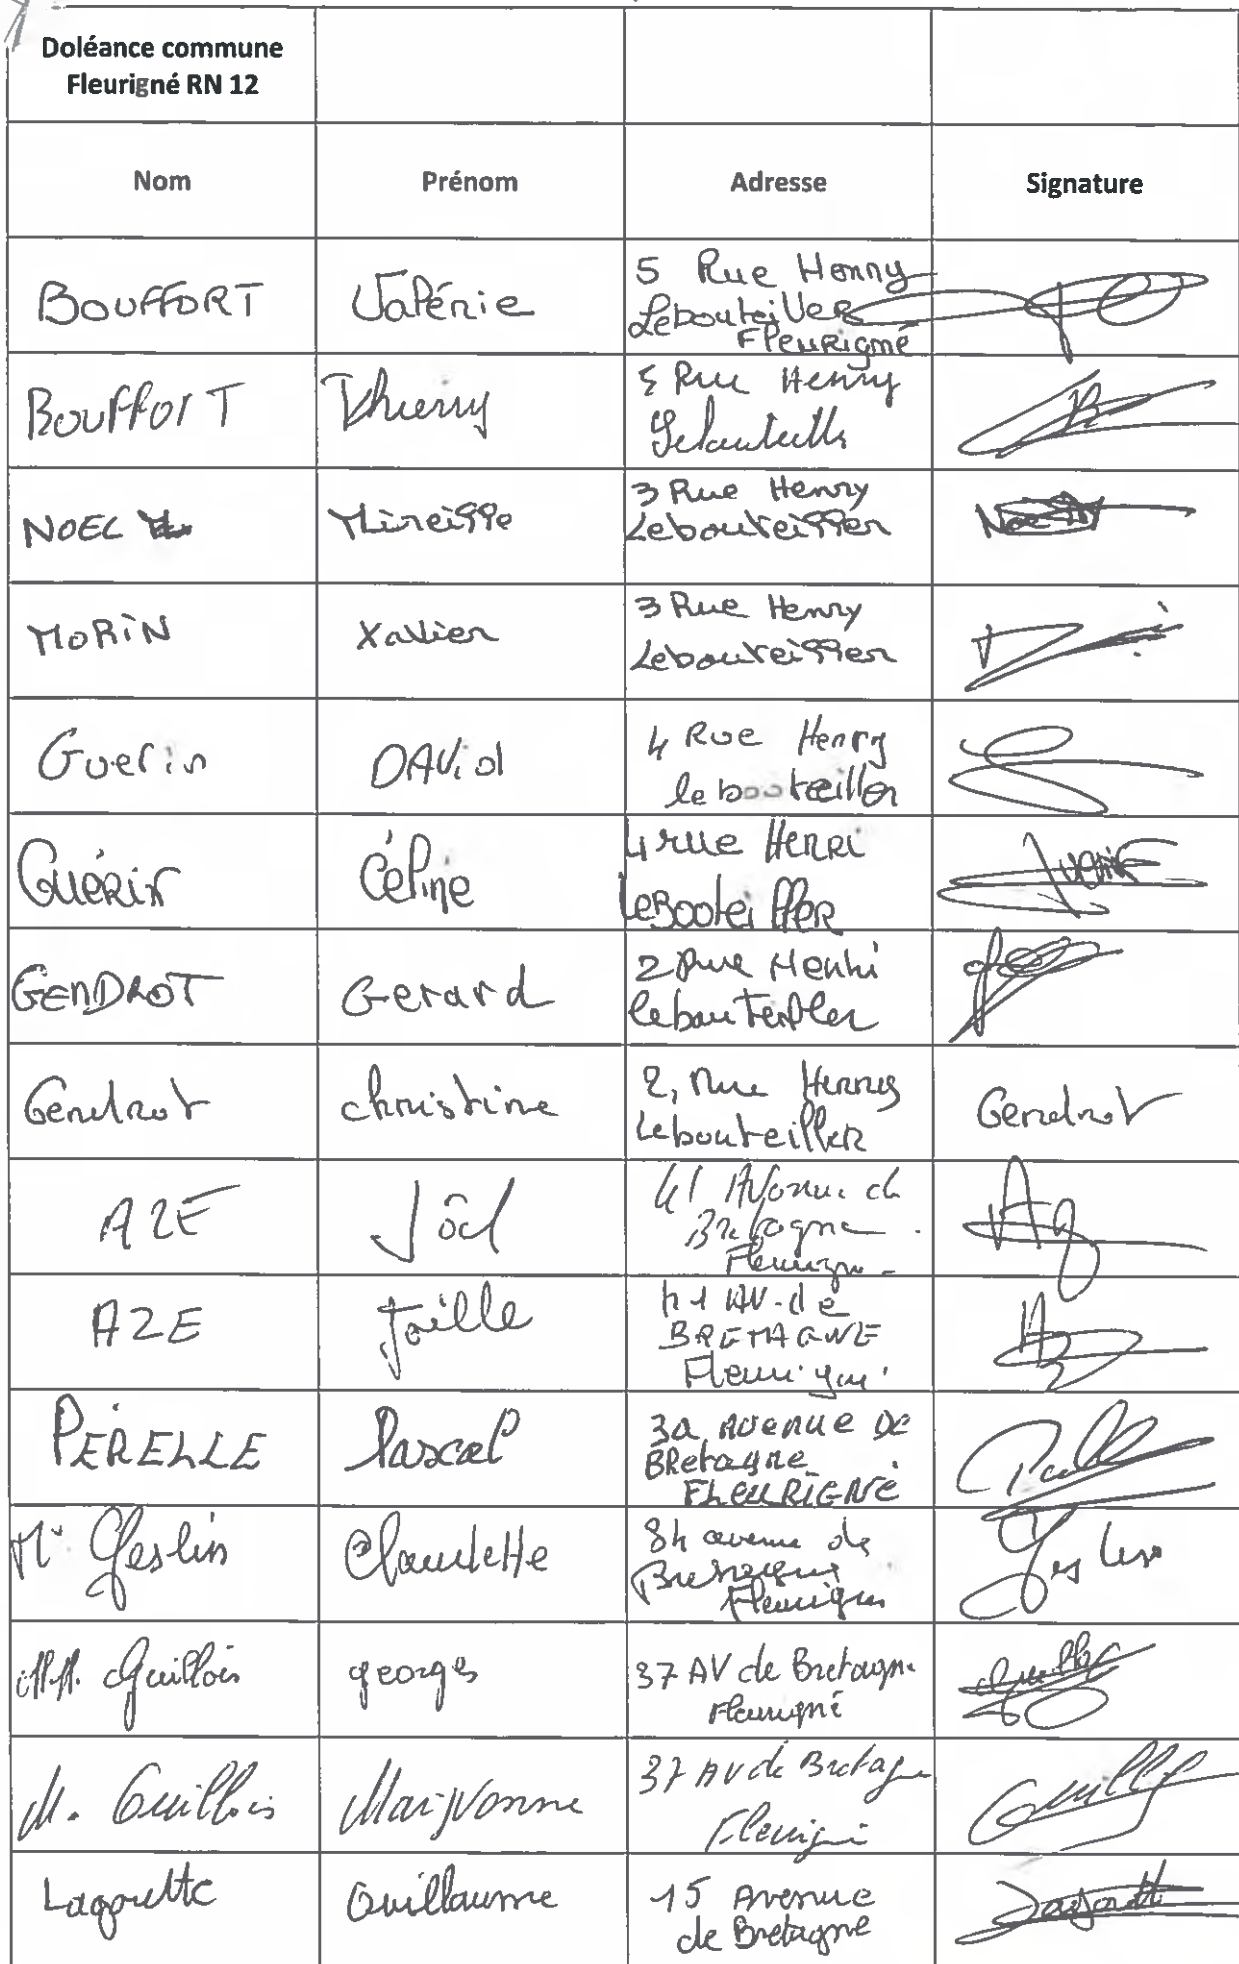 Doléance commune
Fleurigné RN 12
Nom Prénom Adresse Signature
BOUFFORT Valérie 5 Rue Henry
Lebouteiller
Fleurigné
BOUFFORT Thierry 5 Rue Henry
NOEL Mireille 3 Rue Henry
Lebouteiller
MORIN Xavier 3 Rue Henry
Lebouteiller
Guerin DAVid 4 Rue Henry
le bouteiller
GUÉRIN Céline 4 rue Henri
LeBouteiller
GENDROT Gerard 2 Rue Henri
lebouteiller
Gendrot christine 2, rue Henry
Lebouteiller Gendrot
AZE Joël 41 Avenue de
Bretagne
Fleurigné
AZE Joëlle 41 AV. de
BRETAGNE
Fleurigné
PERELLE Pascal Avenue DE
BRetagne
FLEURIGNÉ
Geslin Claudette avenue de
Bretagne
Fleurigné Geslin
Guillois georges 37 AV de Bretagne
Fleurigné
M. Guillois Maryvonne 37 AV de Bretagne
Fleurigné
Lagoutte Guillaume 15 Avenue
de Bretagne